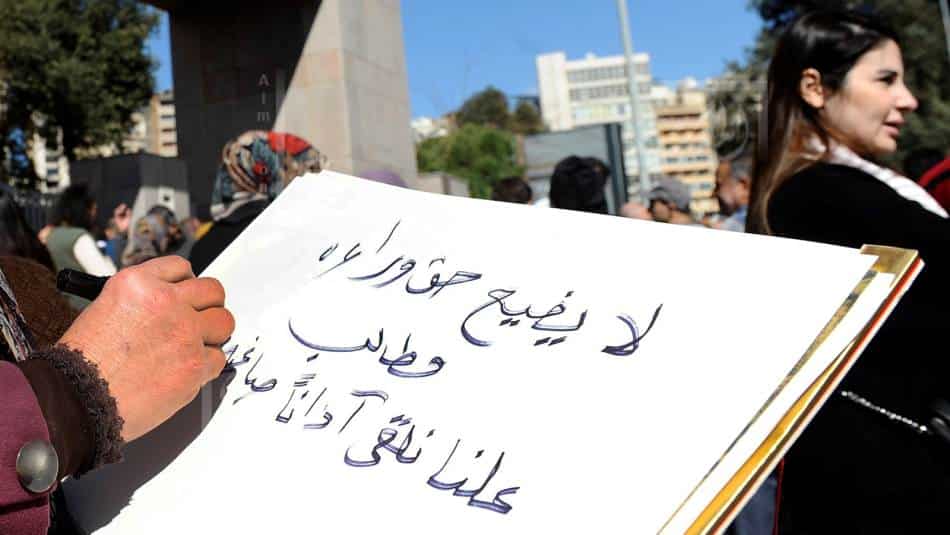 لا يضيع حق وراءه
مطالب
علنا نلقى آذانًا صاغية